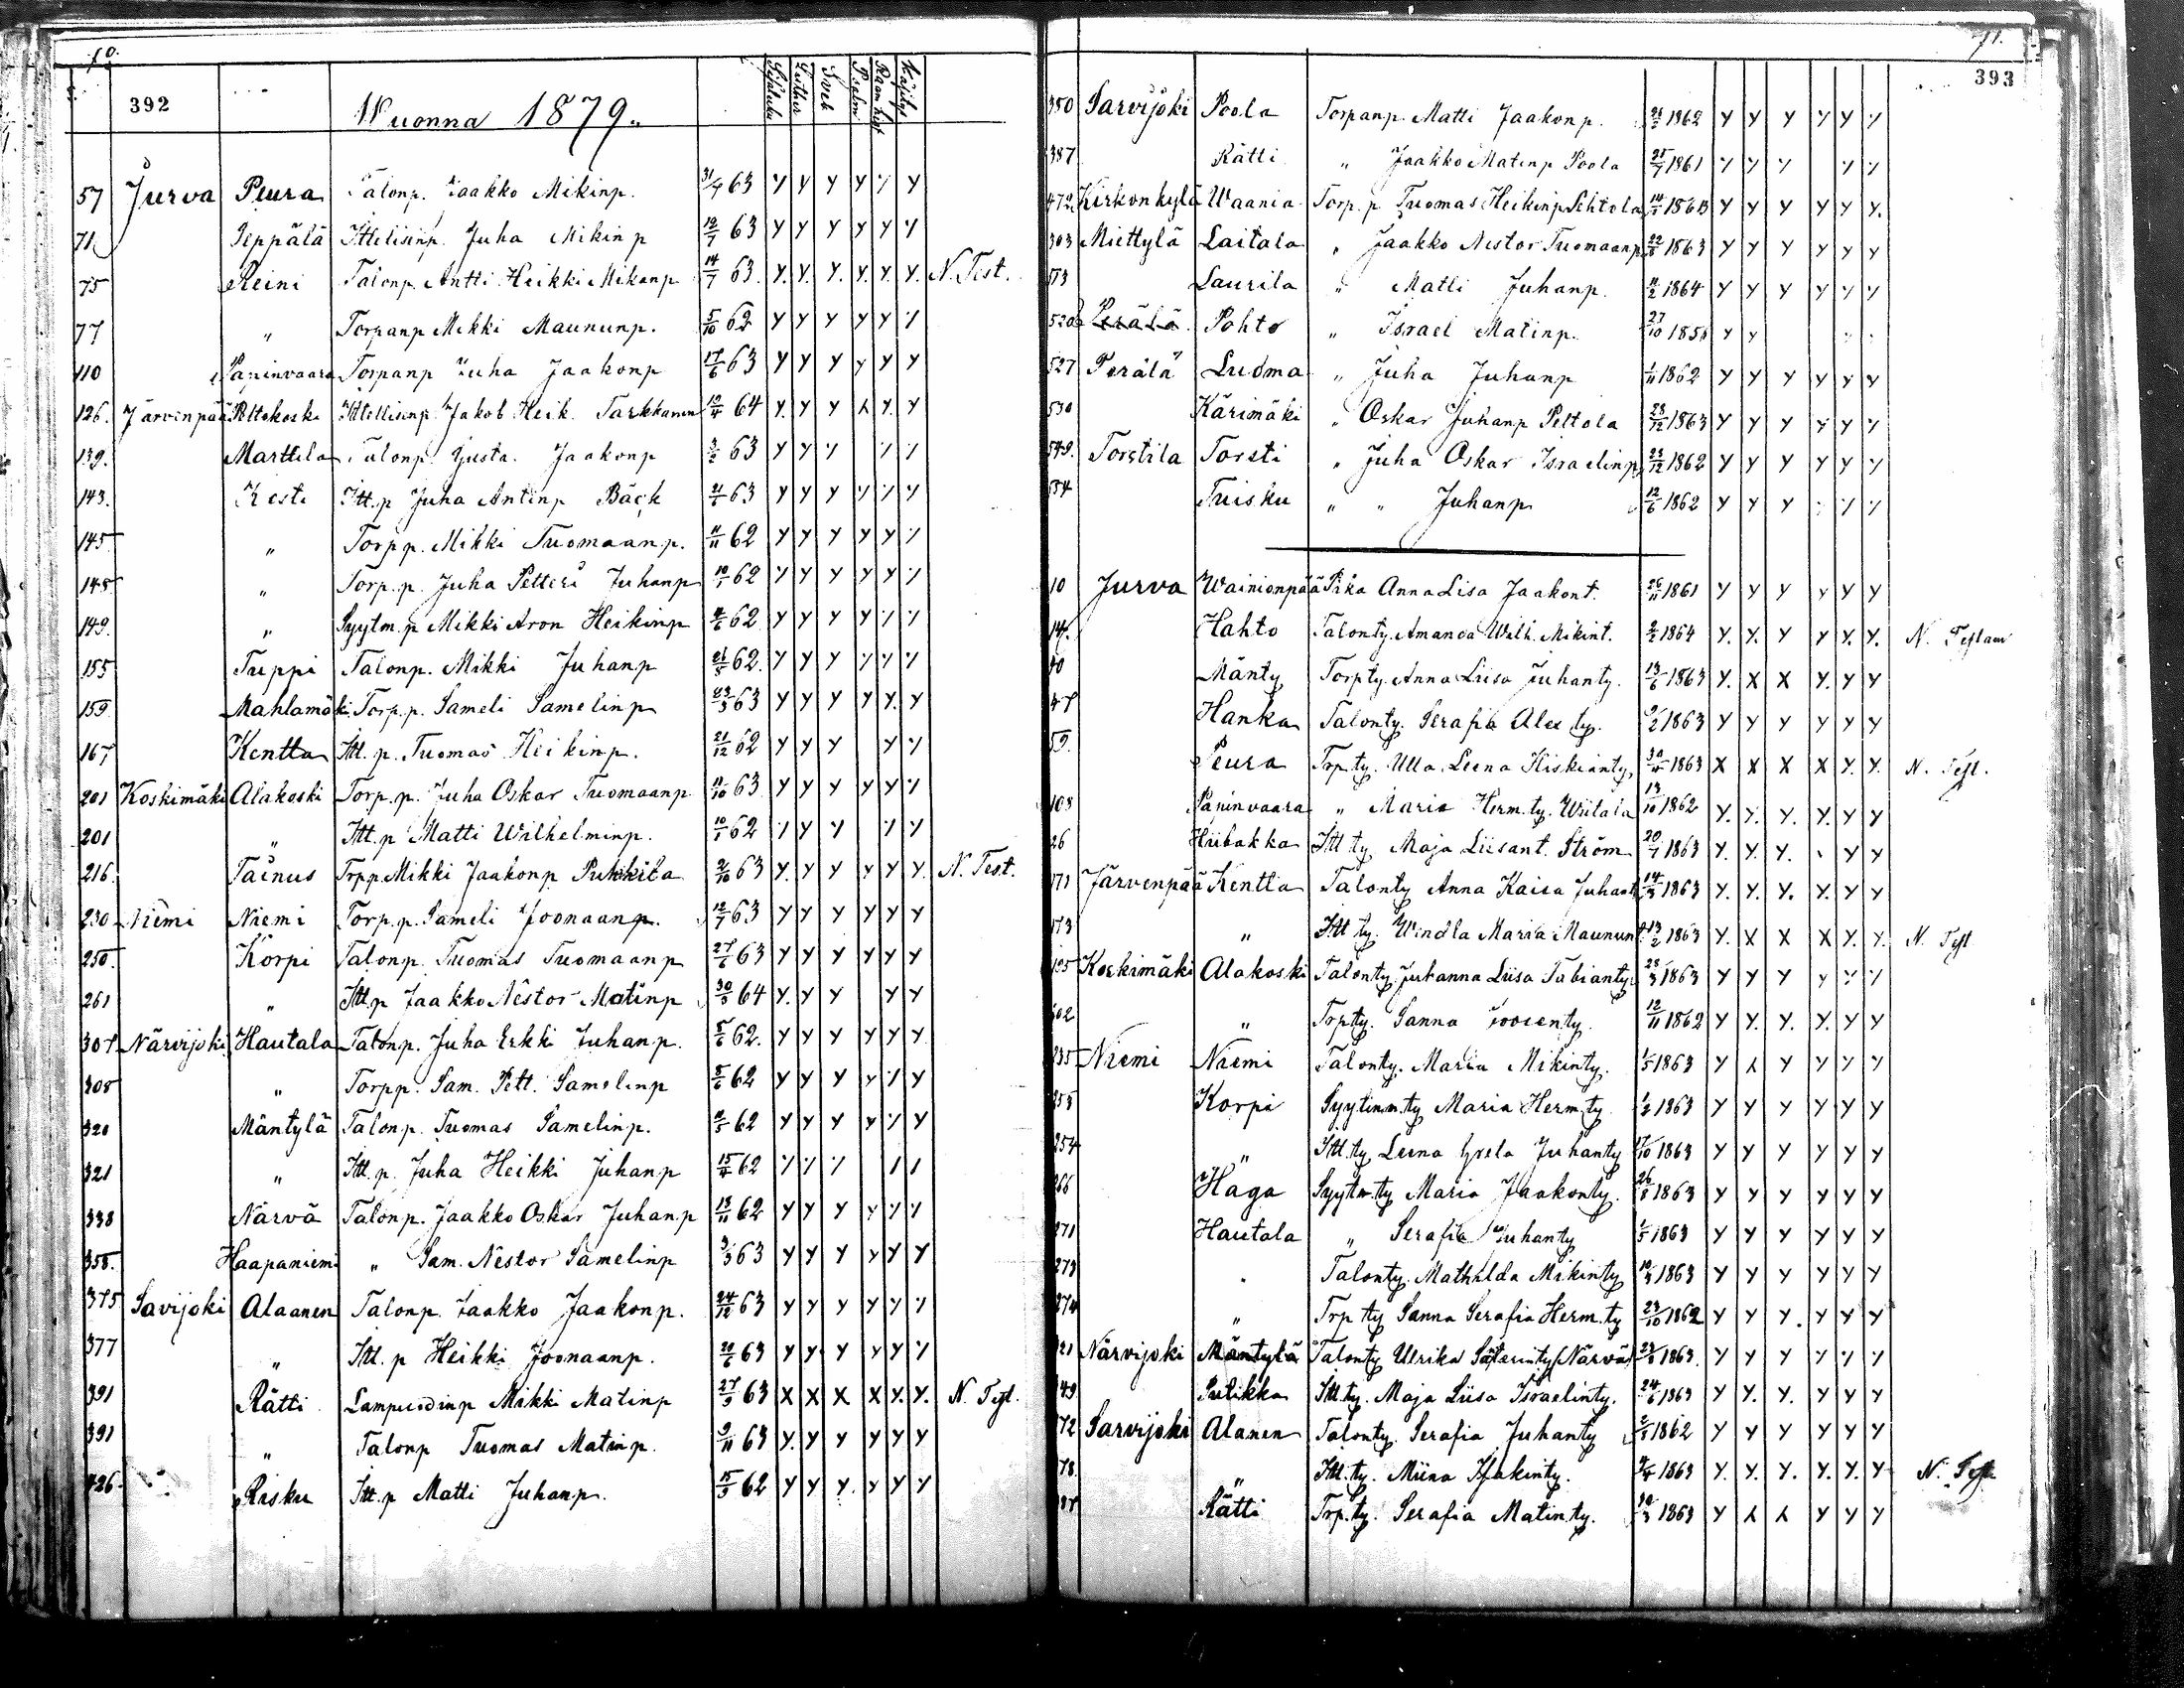 70.
392
Wuonna 1879.
Sisäluku Luther Sveb Psalm Raam. hist Käsitys
57 Jurva Peura Talonp. Jaakko Mikinp. 31/7 63 Y Y Y Y Y Y
71 Seppälä Ittelisenp. Juha Mikinp 12/7 63 Y Y Y Y Y Y
75 Reini Talonp. Antti Heikki Mikonp 14/7 63. Y. Y. Y. Y. Y. Y. N. Test.
77 " Torpanp Mikki Maununp. 5/10 62 Y Y Y Y Y Y
110 Paninvaara Torpanp Juha Jaakonp 17/6 63 Y Y Y Y Y Y
126. Järvenpää Peltokoski Ittellisenp. Jakob Heik. Tarkkanen 12/4 64 Y. Y. Y X Y. Y
139. Marttila Talonp. Gusta. Jaakonp 63 Y Y Y Y Y
143. Kesti Itt.p Juha Antinp Bäck 63 Y Y Y Y Y Y
145 " Torpp. Mikki Tuomaanp. 11/11 62 Y Y Y Y Y Y
145 " Torp.p. Juha Petteri Juhanp 62 Y Y Y Y Y Y
149. " Syytm.p Mikki Aron Heikinp 62 Y Y Y Y Y Y
155 Tuppi Talonp. Mikki Juhanp 62. Y Y Y Y Y Y
159 Mahlamäki Torp.p. Sameli Samelinp 23/3 63 Y Y Y Y Y. Y
167 Kentta Itt.p. Tuomas Heikinp. 21/12 62 Y Y Y Y Y
201 Koskimäki Alakoski Torp.p. Juha Oskar Tuomaanp 63 Y Y Y Y Y Y
201 " Itt.p Matti Wilhelminp. 62 Y Y Y Y Y
216. Tainus Trpp. Mikki Jaakonp 63 Y. Y Y Y Y Y. N. Test.
230 Niemi Niemi Torp.p. Sameli Joonaanp. 12/7 63 Y Y Y Y Y Y
250. Korpi Talonp. Tuomas Tuomaanp 27/6 63 Y Y Y Y Y Y
261 " Itt.p Jaakko Nestor Matinp 64 Y. Y Y Y Y
307. Närvijoki Hautala Talonp. Juha Erkki Juhanp. 62. Y Y Y Y Y Y
308 " Torpp. Sam. Pett. Samelinp 62 Y Y Y Y Y Y
320 Mäntylä Talonp. Tuomas Samelinp. 62 Y Y Y Y Y Y
321 " Itt.p. Juha Heikki Juhanp 15/4 62 Y Y Y
338 Närvä Talonp. Jaakko Oskar Juhanp 13/11 62 Y Y Y Y Y Y
358. Haapaniemi " Sam. Nestor Samelinp 63 Y Y Y Y Y Y
375 Savijoki Alaanen Talonp. Jaakko Jaakonp. 24/12 63 Y Y Y Y Y Y
377 " Itt.p Heikki Joonaanp. 20/6 63 Y Y Y Y Y Y
391 Rätti Mikki Matinp 63 X X X X Y. Y. N. Test.
391 " Talonp Tuomas Matinp. 9/11 63 Y. Y Y Y Y Y
426 Risku Itt.p Matti Juhanp. 62 Y Y Y. Y Y Y
71.
393
350 Sarvijoki Poola Torpanp. Matti Jaakonp. 1862 Y Y Y Y Y Y
387 Rätti " Jaakko Matinp Poola 1861 Y Y Y Y Y
472. Kirkonkylä Waania Torp.p Tuomas Heikinp Lehtola 1863 Y Y Y Y Y Y.
303 Miettylä Laitala " Jaakko Nestor Tuomaanp 1863 Y Y Y Y Y Y
Laurila " Matti Juhanp. 1864 Y Y Y Y Y Y
520 Perälä Pohto " Israel Matinp. 27/10 Y Y
527 Perälä Luoma " Juha Juhanp 1/11 1862 Y Y Y Y Y Y
530 Kärimäki " Oskar Juhanp Peltola 28/12 1863 Y Y Y Y Y Y
549. Torstila Torsti " Juha Oskar Israelinp 23/12 1862 Y Y Y Y Y Y
Tuisku " " Juhanp 12/6 1862 Y Y Y Y Y Y
10 Jurva Wainionpää Pika Anna Lisa Jaakont. 26/11 1861 Y Y Y Y Y Y
14. Hahto Talonty. Amanda Wilh. Mikint. 1864 Y. Y. Y Y Y. Y. N. Testam
40 Mänty Torpty. Anna Liisa Juhanty. 13/6 1863 Y. X X Y. Y Y
47 Hanka Talonty. Serafia Alex ty. 1863 Y Y Y Y Y Y
59. Peura Trpty. Ulla Leena Hiskianty, 1863 X X X X Y. Y. N. Test.
108 Paninvaara " Maria Herm.ty. Wiitala 13/10 1862 Y. Y. Y. Y. Y Y
26 Hiibakka Itt ty Maja Liisant. Ström 20/7 1863 Y. Y. Y. Y Y
171 Järvenpää Kentta Talonty Anna Kaisa Juhant. 14/3 1863 Y. Y. Y. Y. Y Y
173 " Itt ty. Windla Maria Maununt. 13/2 1863 Y. X X X Y. Y. N. Test
195 Koskimäki Alakoski Talonty. Juhanna Liisa Fabianty. 28/3 1863 Y Y Y Y Y Y
202 " Trpty. Sanna Joosenty. 12/11 1862 Y Y. Y. Y. Y Y
235 Niemi Niemi Talonty. Maria Mikinty. 1/5 1863 Y X Y Y Y Y
253 Korpi Syytinm.ty Maria Herm.ty. 1/2 1863 Y Y Y Y Y Y
254 " Itt.ty. Leena Greta Juhanty 17/10 1863 Y Y Y Y Y Y
266 Haga Syytm.ty Maria Jaakonty. 26/8 1863 Y Y Y Y Y Y
271 Hautala " Serafia Juhanty 1/5 1863 Y Y Y Y Y Y
273 " Talonty. Mathilda Mikinty 1863 Y Y Y Y Y Y
274 " Trp ty Sanna Serafia Herm.ty 23/10 1862 Y Y Y. Y Y Y
21 Närvijoki Mäntylä Talonty Ulrika (Närvä) 1863. Y Y Y Y Y Y
49 Pulikka Itt.ty. Maja Liisa Israelinty. 24/6 1863 Y Y. Y. Y Y Y
72 Sarvijoki Alanen Talonty. Serafia Juhanty 1862 Y Y Y Y Y Y
78. " Itt.ty. Miina Isakinty. 1863 Y. Y. Y. Y. Y. Y N. Test
Rätti Trp.ty. Serafia Matinty. 1863 Y X X Y Y Y